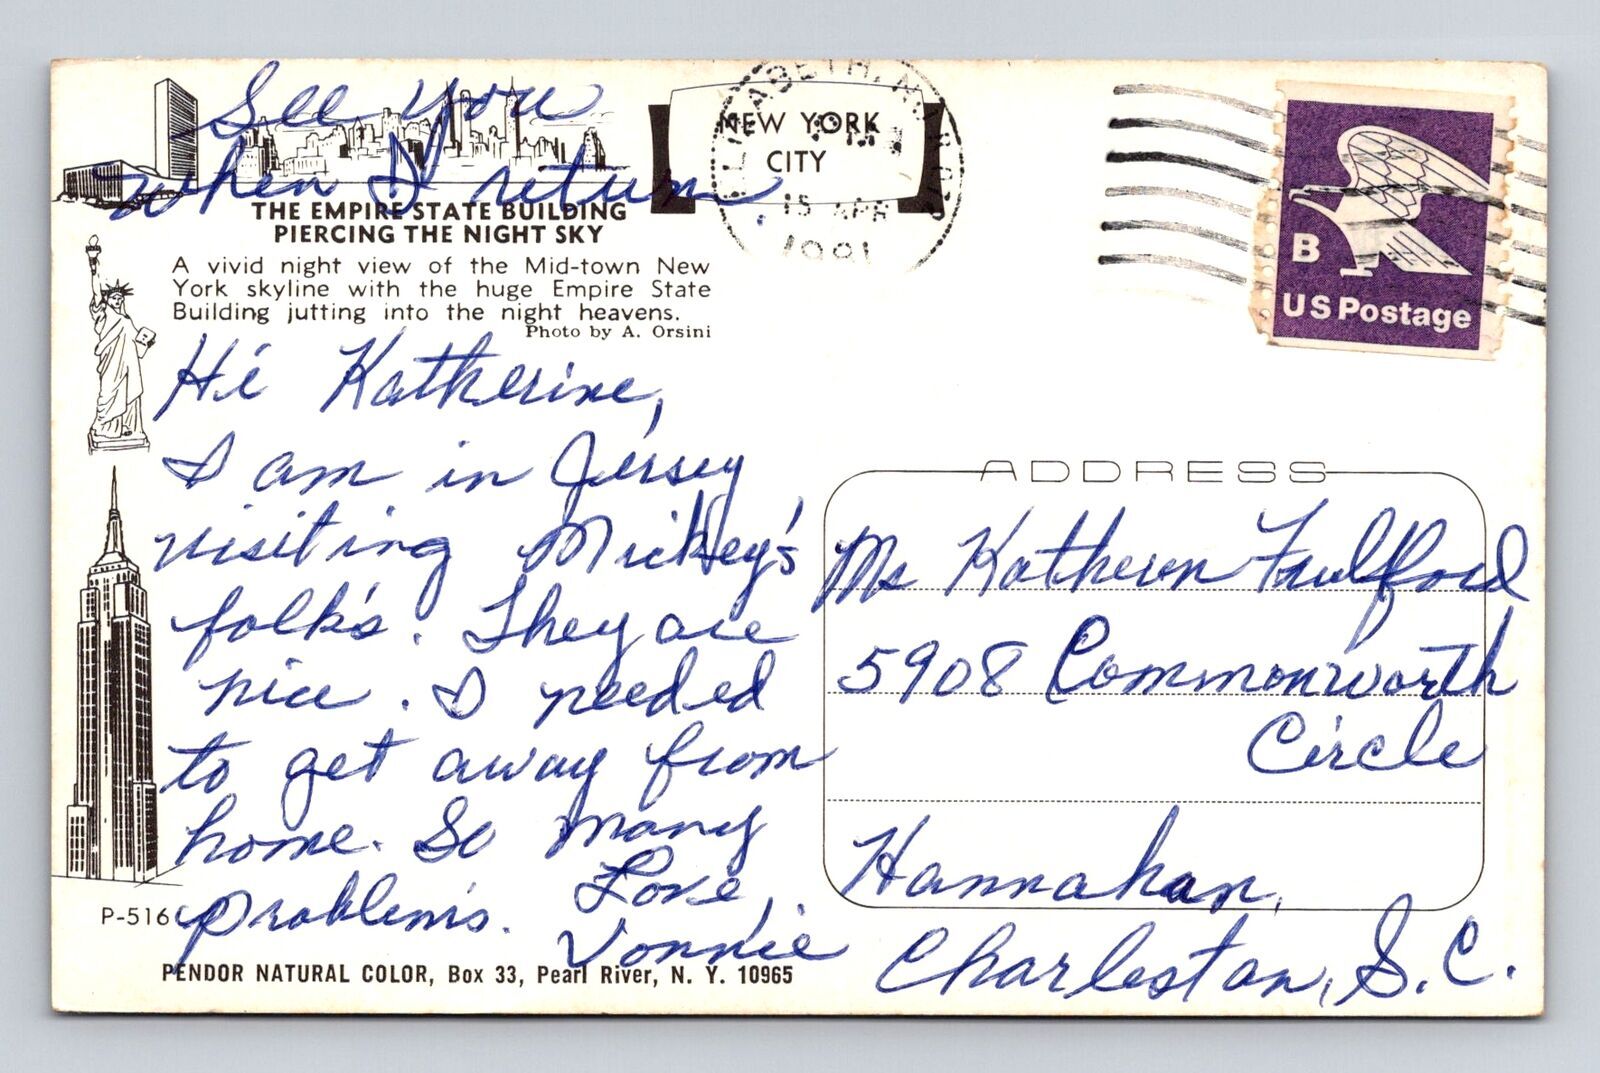 See you
when I return
THE EMPIRE STATE BUILDING
PIERCING THE NIGHT SKY
A vivid night view of the Mid-town New
York skyline with the huge Empire State
Building jutting into the night heavens.
Photo by A. Orsini
Hi Katherine,
I am in Jersey
visiting Mickey's
folk's. They are
nice. I needed
to get away from
home. So many
problem's. Love,
Vonnie
P-516
PENDOR NATURAL COLOR, Box 33, Pearl River, N. Y. 10965
NEW YORK
CITY
15 APR
1981
B
US Postage
ADDRESS
Ms Katheren Faulfford
5908 Commonworth
Circle
Hannahan,
Charleston, S.C.